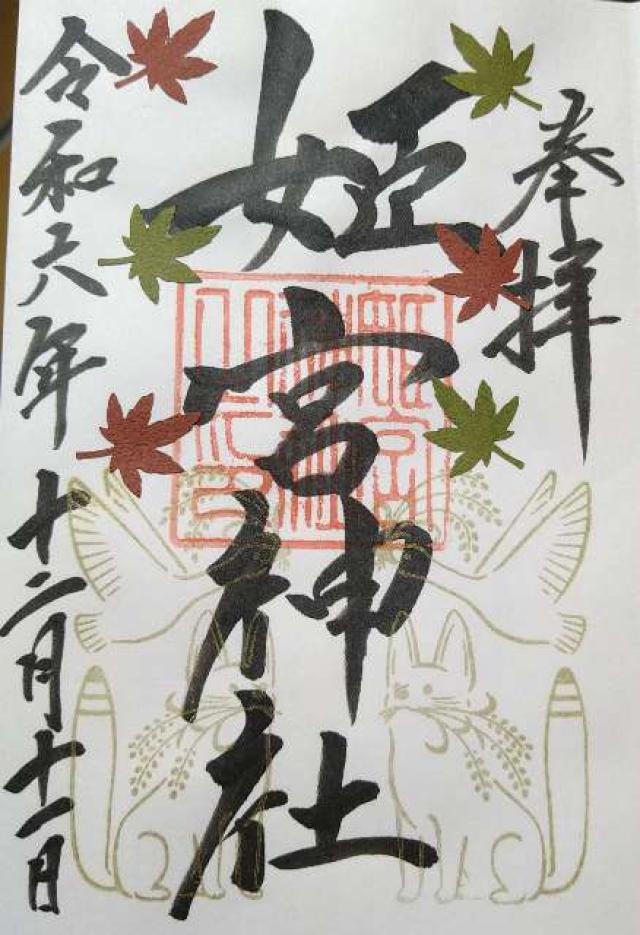 奉拝
姫宮神社
令和六年十二月十一日